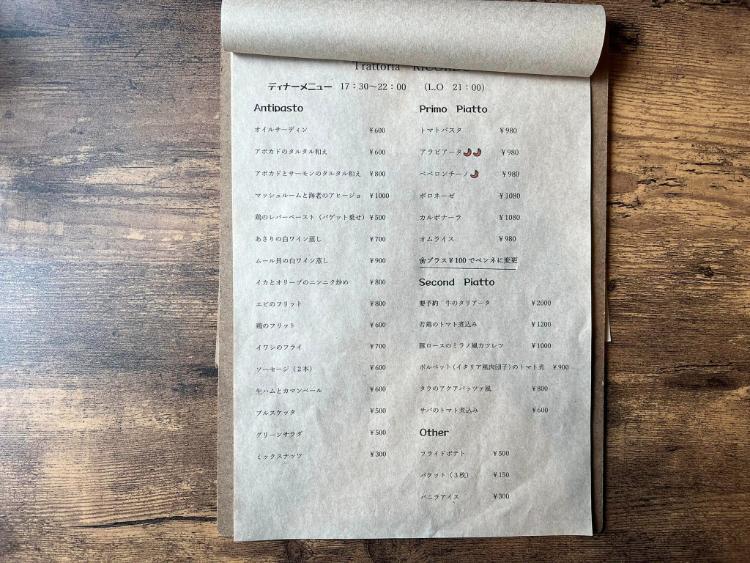 Trattoria
ディナーメニュー 17:30～22:00 (L.O 21:00)
Antipasto
オイルサーディン ¥600
アボカドのタルタル和え ¥600
アボカドとサーモンのタルタル和え ¥800
マッシュルームと海老のアヒージョ ¥1000
鶏のレバーペースト（バゲット乗せ） ¥500
あさりの白ワイン蒸し ¥700
ムール貝の白ワイン蒸し ¥900
イカとオリーブのニンニク炒め ¥800
エビのフリット ¥800
鶏のフリット ¥600
イワシのフライ ¥700
ソーセージ（２本） ¥600
生ハムとカマンベール ¥600
ブルスケッタ ¥500
グリーンサラダ ¥500
ミックスナッツ ¥300
Primo Piatto
トマトパスタ ¥980
アラビアータ ¥980
ペペロンチーノ ¥980
ボロネーゼ ¥1080
カルボナーラ ¥1080
オムライス ¥980
プラス¥100でペンネに変更
Second Piatto
要予約 牛のタリアータ ¥2000
若鶏のトマト煮込み ¥1200
豚ロースのミラノ風カツレツ ¥1000
ポルペット(イタリア風肉団子)のトマト煮 ¥900
タラのアクアパッツァ風 ¥800
サバのトマト煮込み ¥600
Other
フライドポテト ¥500
バケット（３枚） ¥150
バニラアイス ¥300